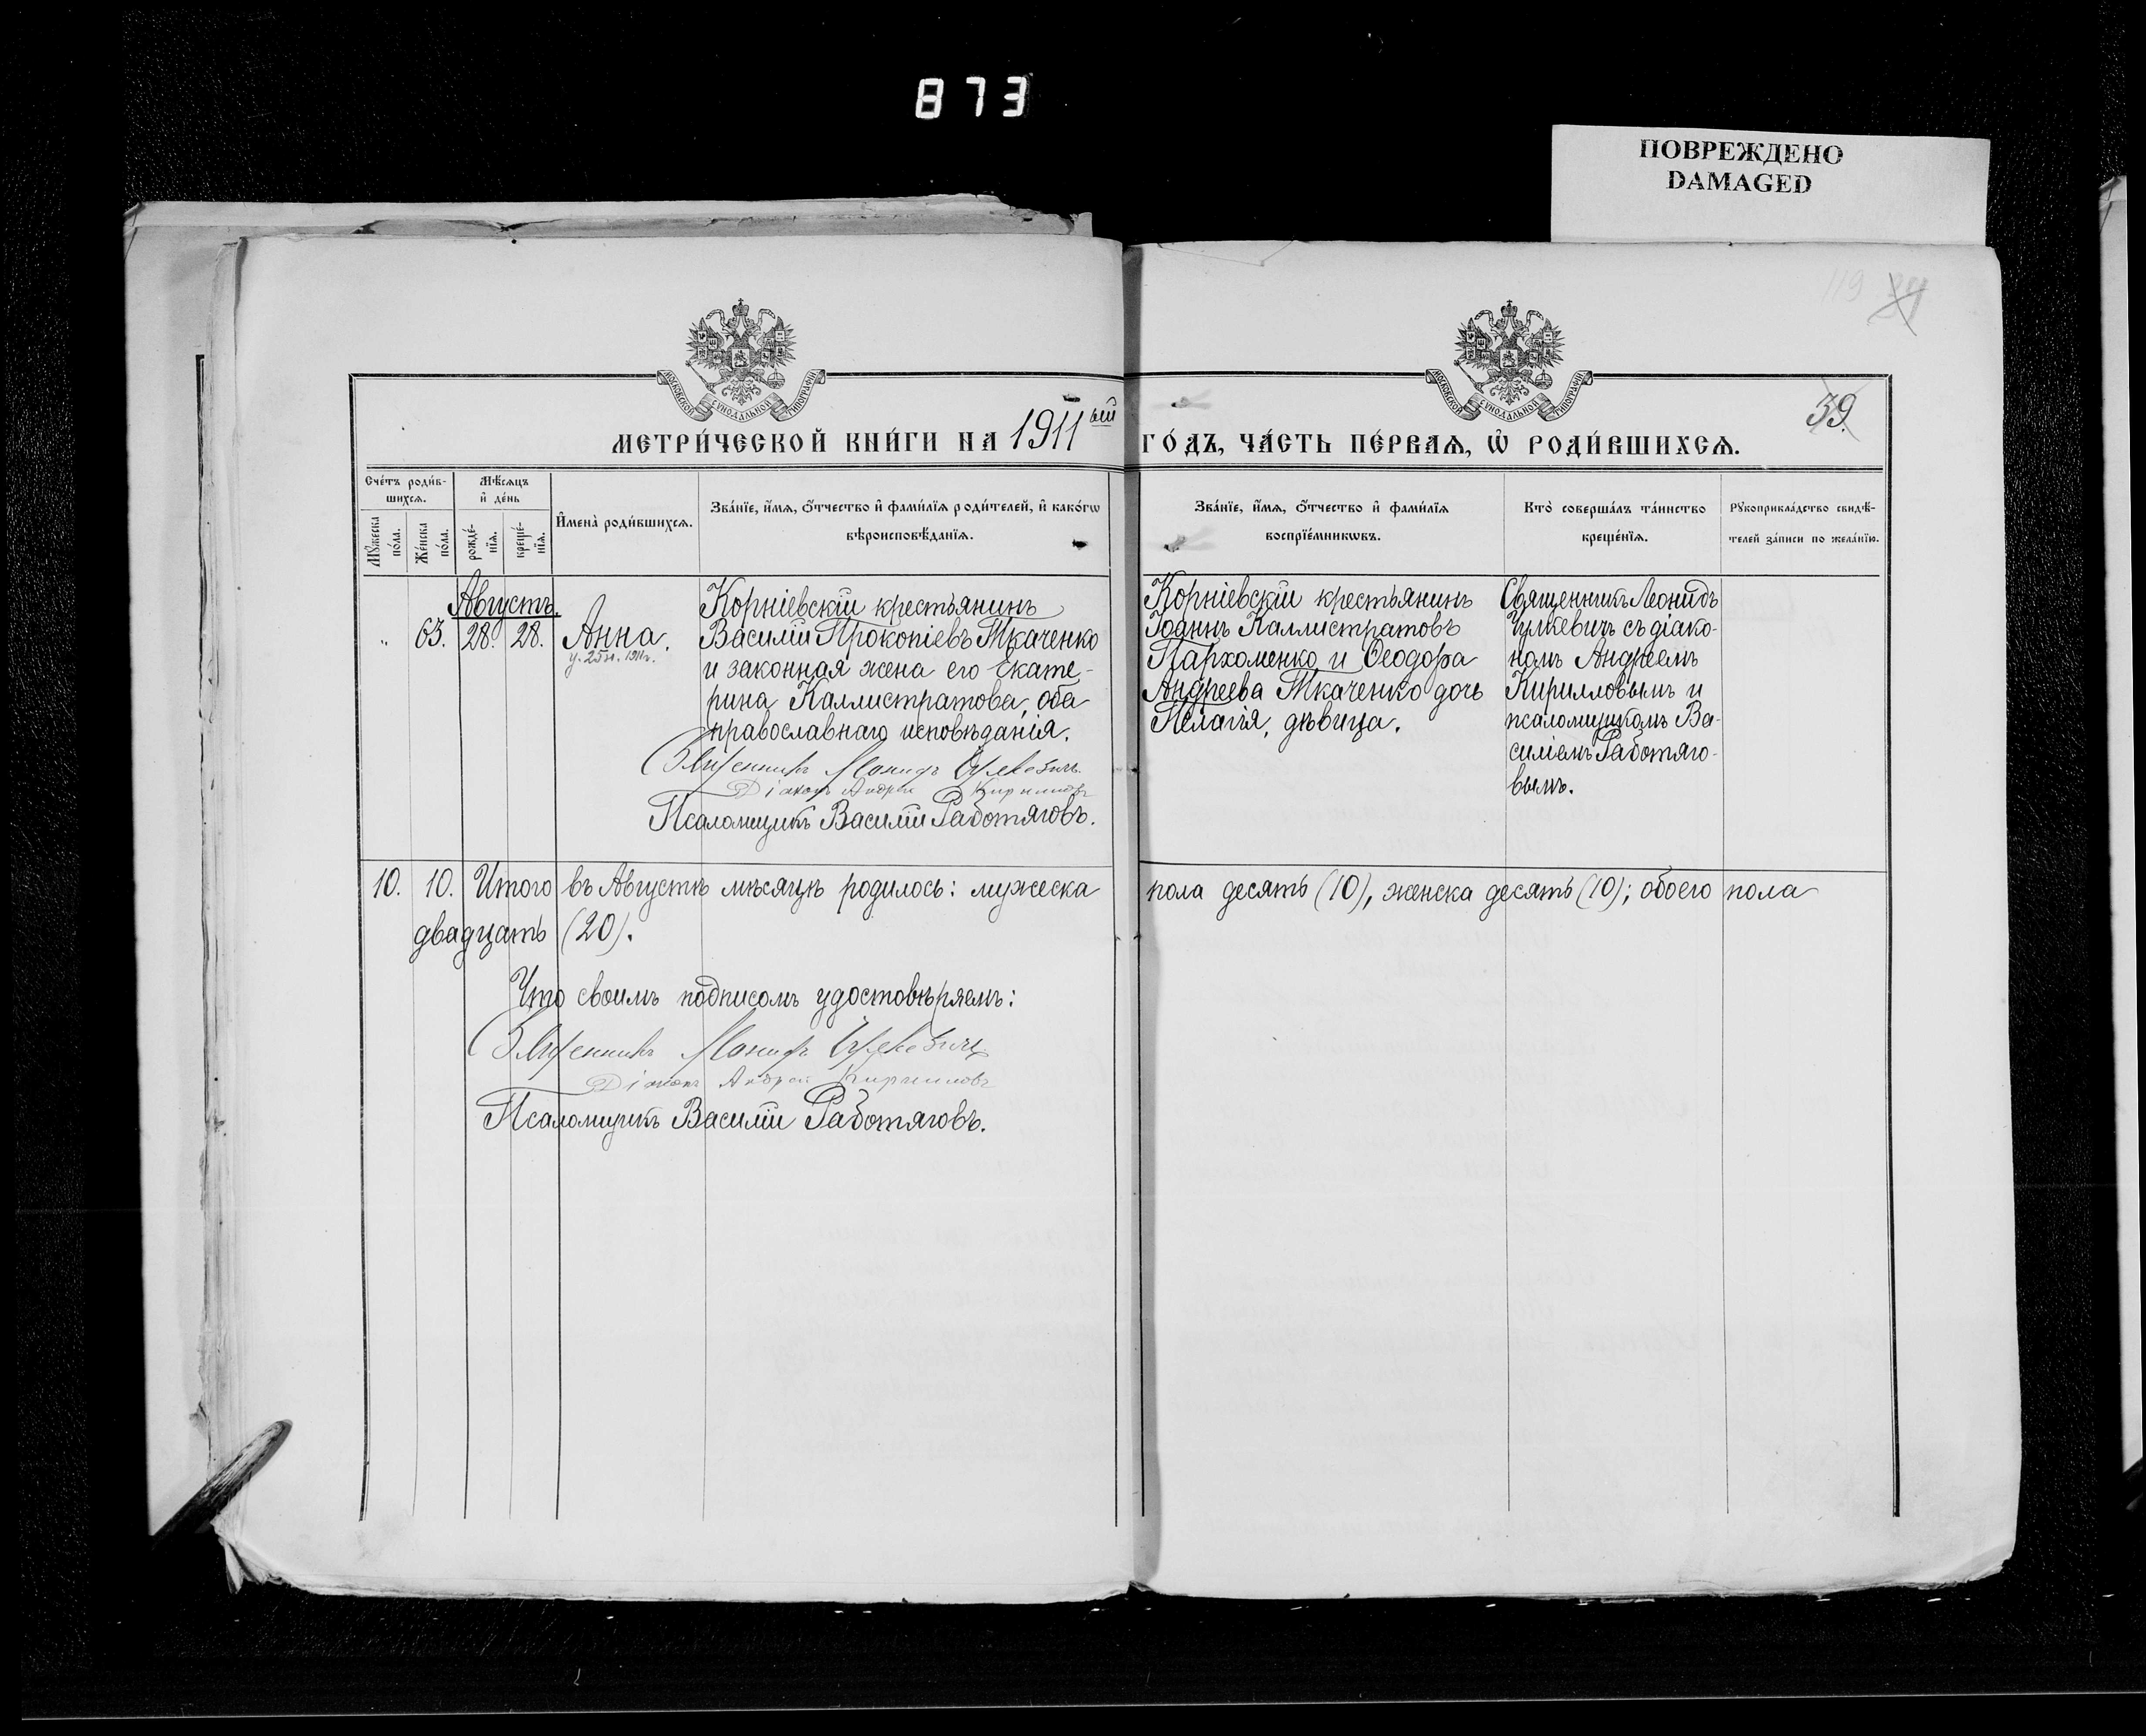 873
ПОВРЕЖДЕНО
DAMAGED
119
39.
МОСКОВСКОЙ СѴНОДАЛЬНОЙ ТИПОГРАФІИ
МОСКОВСКОЙ СѴНОДАЛЬНОЙ ТИПОГРАФІИ
МЕТРИ́ЧЕСКОЙ КНИ́ГИ НА 1911ый ГО́ДЪ, ЧА́СТЬ ПЕ́РВАѦ, Ѡ҆ РОДИ́ВШИХСѦ.
Сче́тъ роди́в-
шихсѧ.
Мꙋ́жеска по́ла.
Же́нска по́ла.
Мѣ́сѧцъ
и҆ де́нь
рожде́-
нїѧ.
креще́-
нїѧ.
И҆мена̀ роди́вшихсѧ.
Зва́нїе, и҆́мѧ, ѻ҆́тчество и҆ фами́лїѧ роди́телей, и҆ како́гѡ
вѣроисповѣ́данїѧ.
Зва́нїе, и҆́мѧ, ѻ҆́тчество и҆ фами́лїѧ
воспрїе́мникѡвъ.
Кто̀ соверша́лъ та́инство
креще́нїѧ.
Рꙋкоприкла́дство свидѣ́-
телей за́писи по жела́нїю.
Августъ.
„ 63. 28. 28. Анна.
Корніевскій крестьянинъ
Василій Прокопіевъ Ткаченко
и законная жена его Екате-
рина Каллистратова, оба
православнаго исповѣданія.
Священникъ Леонидъ Чулкевичъ
Діаконъ Андрей Кирилловъ
Псаломщикъ Василій Работяговъ.
Корніевскій крестьянинъ
Іоаннъ Каллистратовъ
Пархоменко и Ѳеодора
Андреева Ткаченко дочь
Пелагія, дѣвица.
Священникъ Леонидъ
Чулкевичъ съ діако-
номъ Андреемъ
Кирилловымъ и
псаломщикомъ Ва-
силіемъ Работяго-
вымъ.
10. 10. Итого въ Августѣ мѣсяцѣ родилось: мужеска пола десять (10), женска десять (10); обоего пола
двадцать (20).
Что своимъ подписомъ удостовѣряемъ:
Священникъ Леонидъ Чулкевичъ
Діаконъ Андрей Кирилловъ
Псаломщикъ Василій Работяговъ.